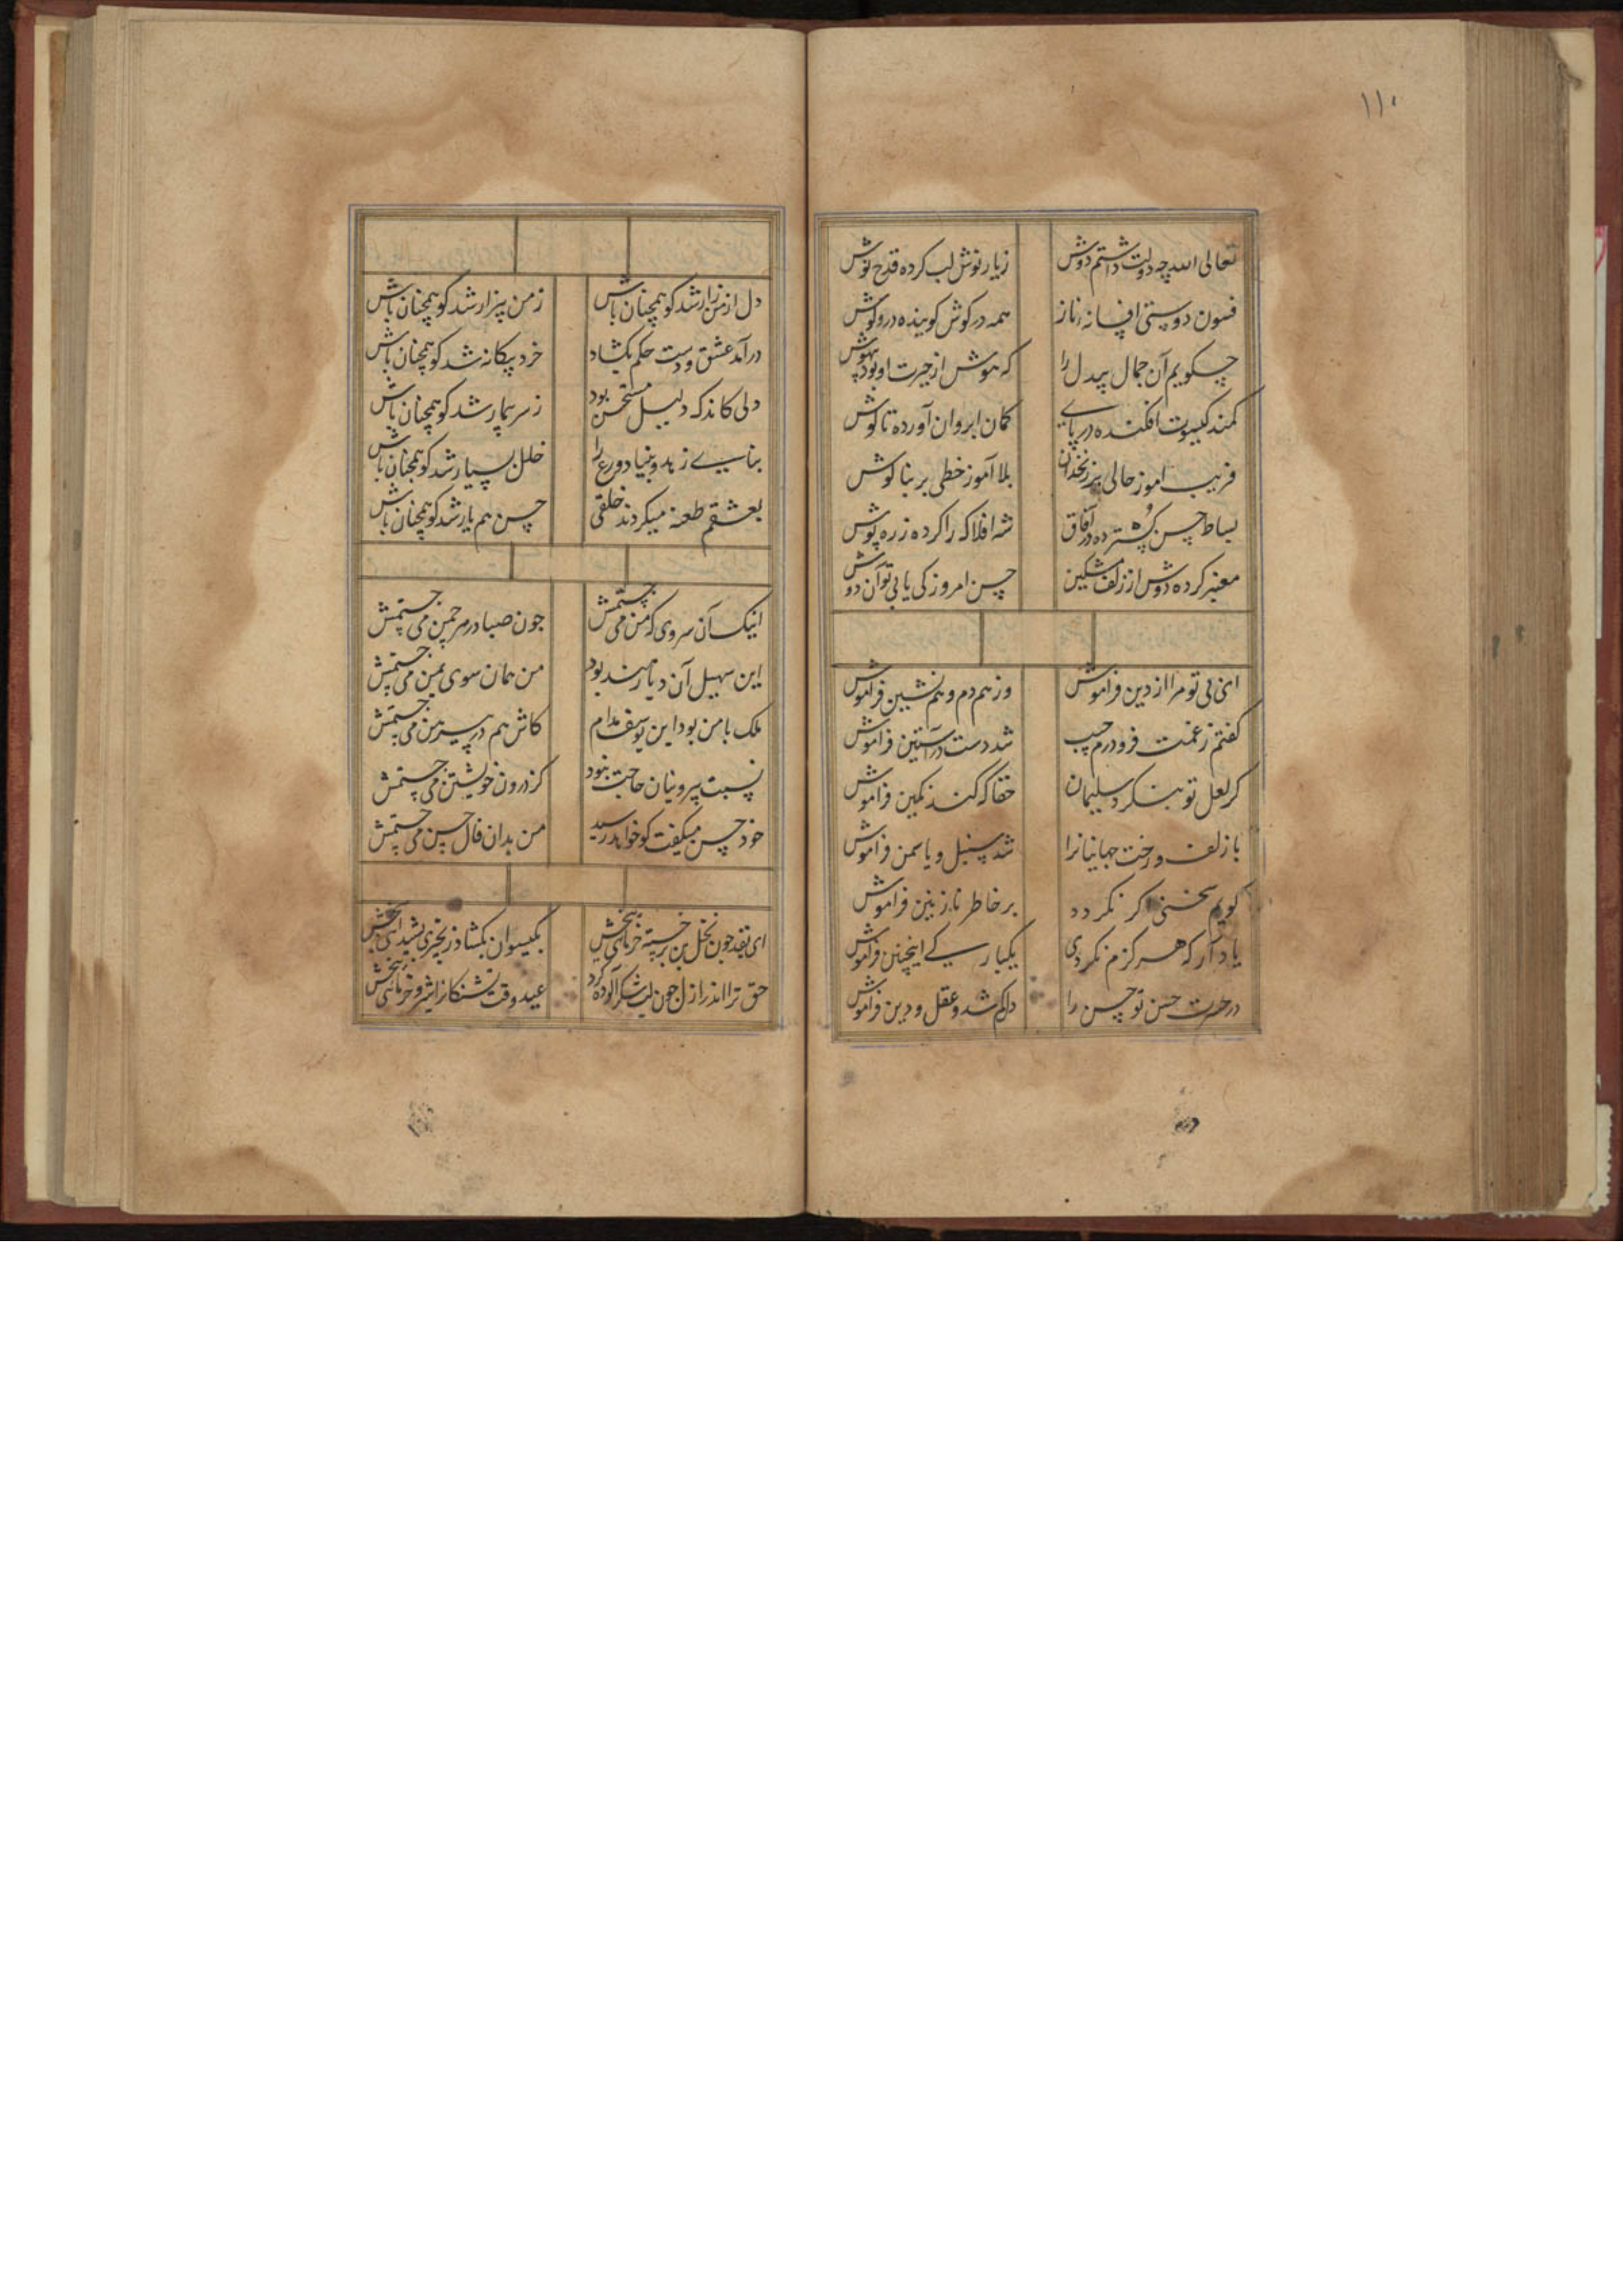 ۱۱۰
تعالی الله چه دولت داشتم دوش زیار نوش لب کرده قدح نوش
فسون دوستی افسانه ناز همه در کوش کوینده در و کوش
چکویم آن جمال بیدل را که هوش از حیرت او بود بیهوش
کمند کیسوت افکنده در پای کمان ابروان آورده تا کوش
فریب اموز خالی بر زنخدان بلا آموز خطی بر بنا کوش
بساط حسن کسترده در آفاق شه افلاک را کرده زره پوش
معنبر کرده دوش از زلف مشکین حسن امروز کی یابی تو آن دوش
ای بی تو مرا از دین فراموش وز همدم و همنشین فراموش
کفتم زغمت فرو درم جیب شد دست در آستین فراموش
کر لعل تو بنکرد سلیمان حقا که کند نکین فراموش
با زلف و رخت جهانیانرا شد سنبل و یاسمن فراموش
کویم سخنی اکر نکردد بر خاطر نازنین فراموش
یاد آر که هرکزم نکردی یکبارکی اینچنین فراموش
در حسن تو حسن را دلکم شد و عقل و دین فراموش
دل از من زار شد کو همچنان باش ز من بیزار شد کو همچنان باش
درآمد عشق و دست حکم بکشاد خرد بیکانه شد کو همچنان باش
دلی کاندک دلیل مستحسن بود ز سر بیمار شد کو همچنان باش
بنای زهد و بنیاد ورع را خلل بسیار شد کو همچنان باش
بعشقم طعنه میکردند خلقی حسن هم یار شد کو همچنان باش
اینک آن سروی که من می جستمش جون صبا در هر چمن می جستمش
این سهیل آن دیار هند بود من همان سوی یمن می جستمش
ملک با من بود این یوسف مدام کاش هم در پیرهن می جستمش
نسبت بیرونیان حاجت نبود کز درون خویشتن می جستمش
خود حسن میکفت کو خواهد رسید من بدان فال حسن می جستمش
ای بقد جون نخل بن بر خسته خرمای بخش بکیسوان بکشاد زنجیری بشیدای بخش
حق ترا اندر ازل جون لب شکر آلوده کرد عید وقت تشنکانرا شیر و خرمای بخش